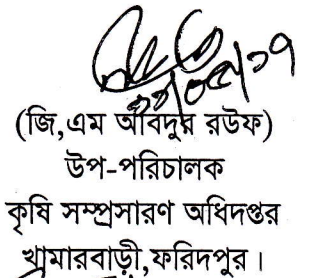 (জি,এম আবিদুর রউফ)
উপ-পরিচালক
কৃষি সম্প্রসারণ অধিদপ্তর
খামারবাড়ী,ফরিদপুর।